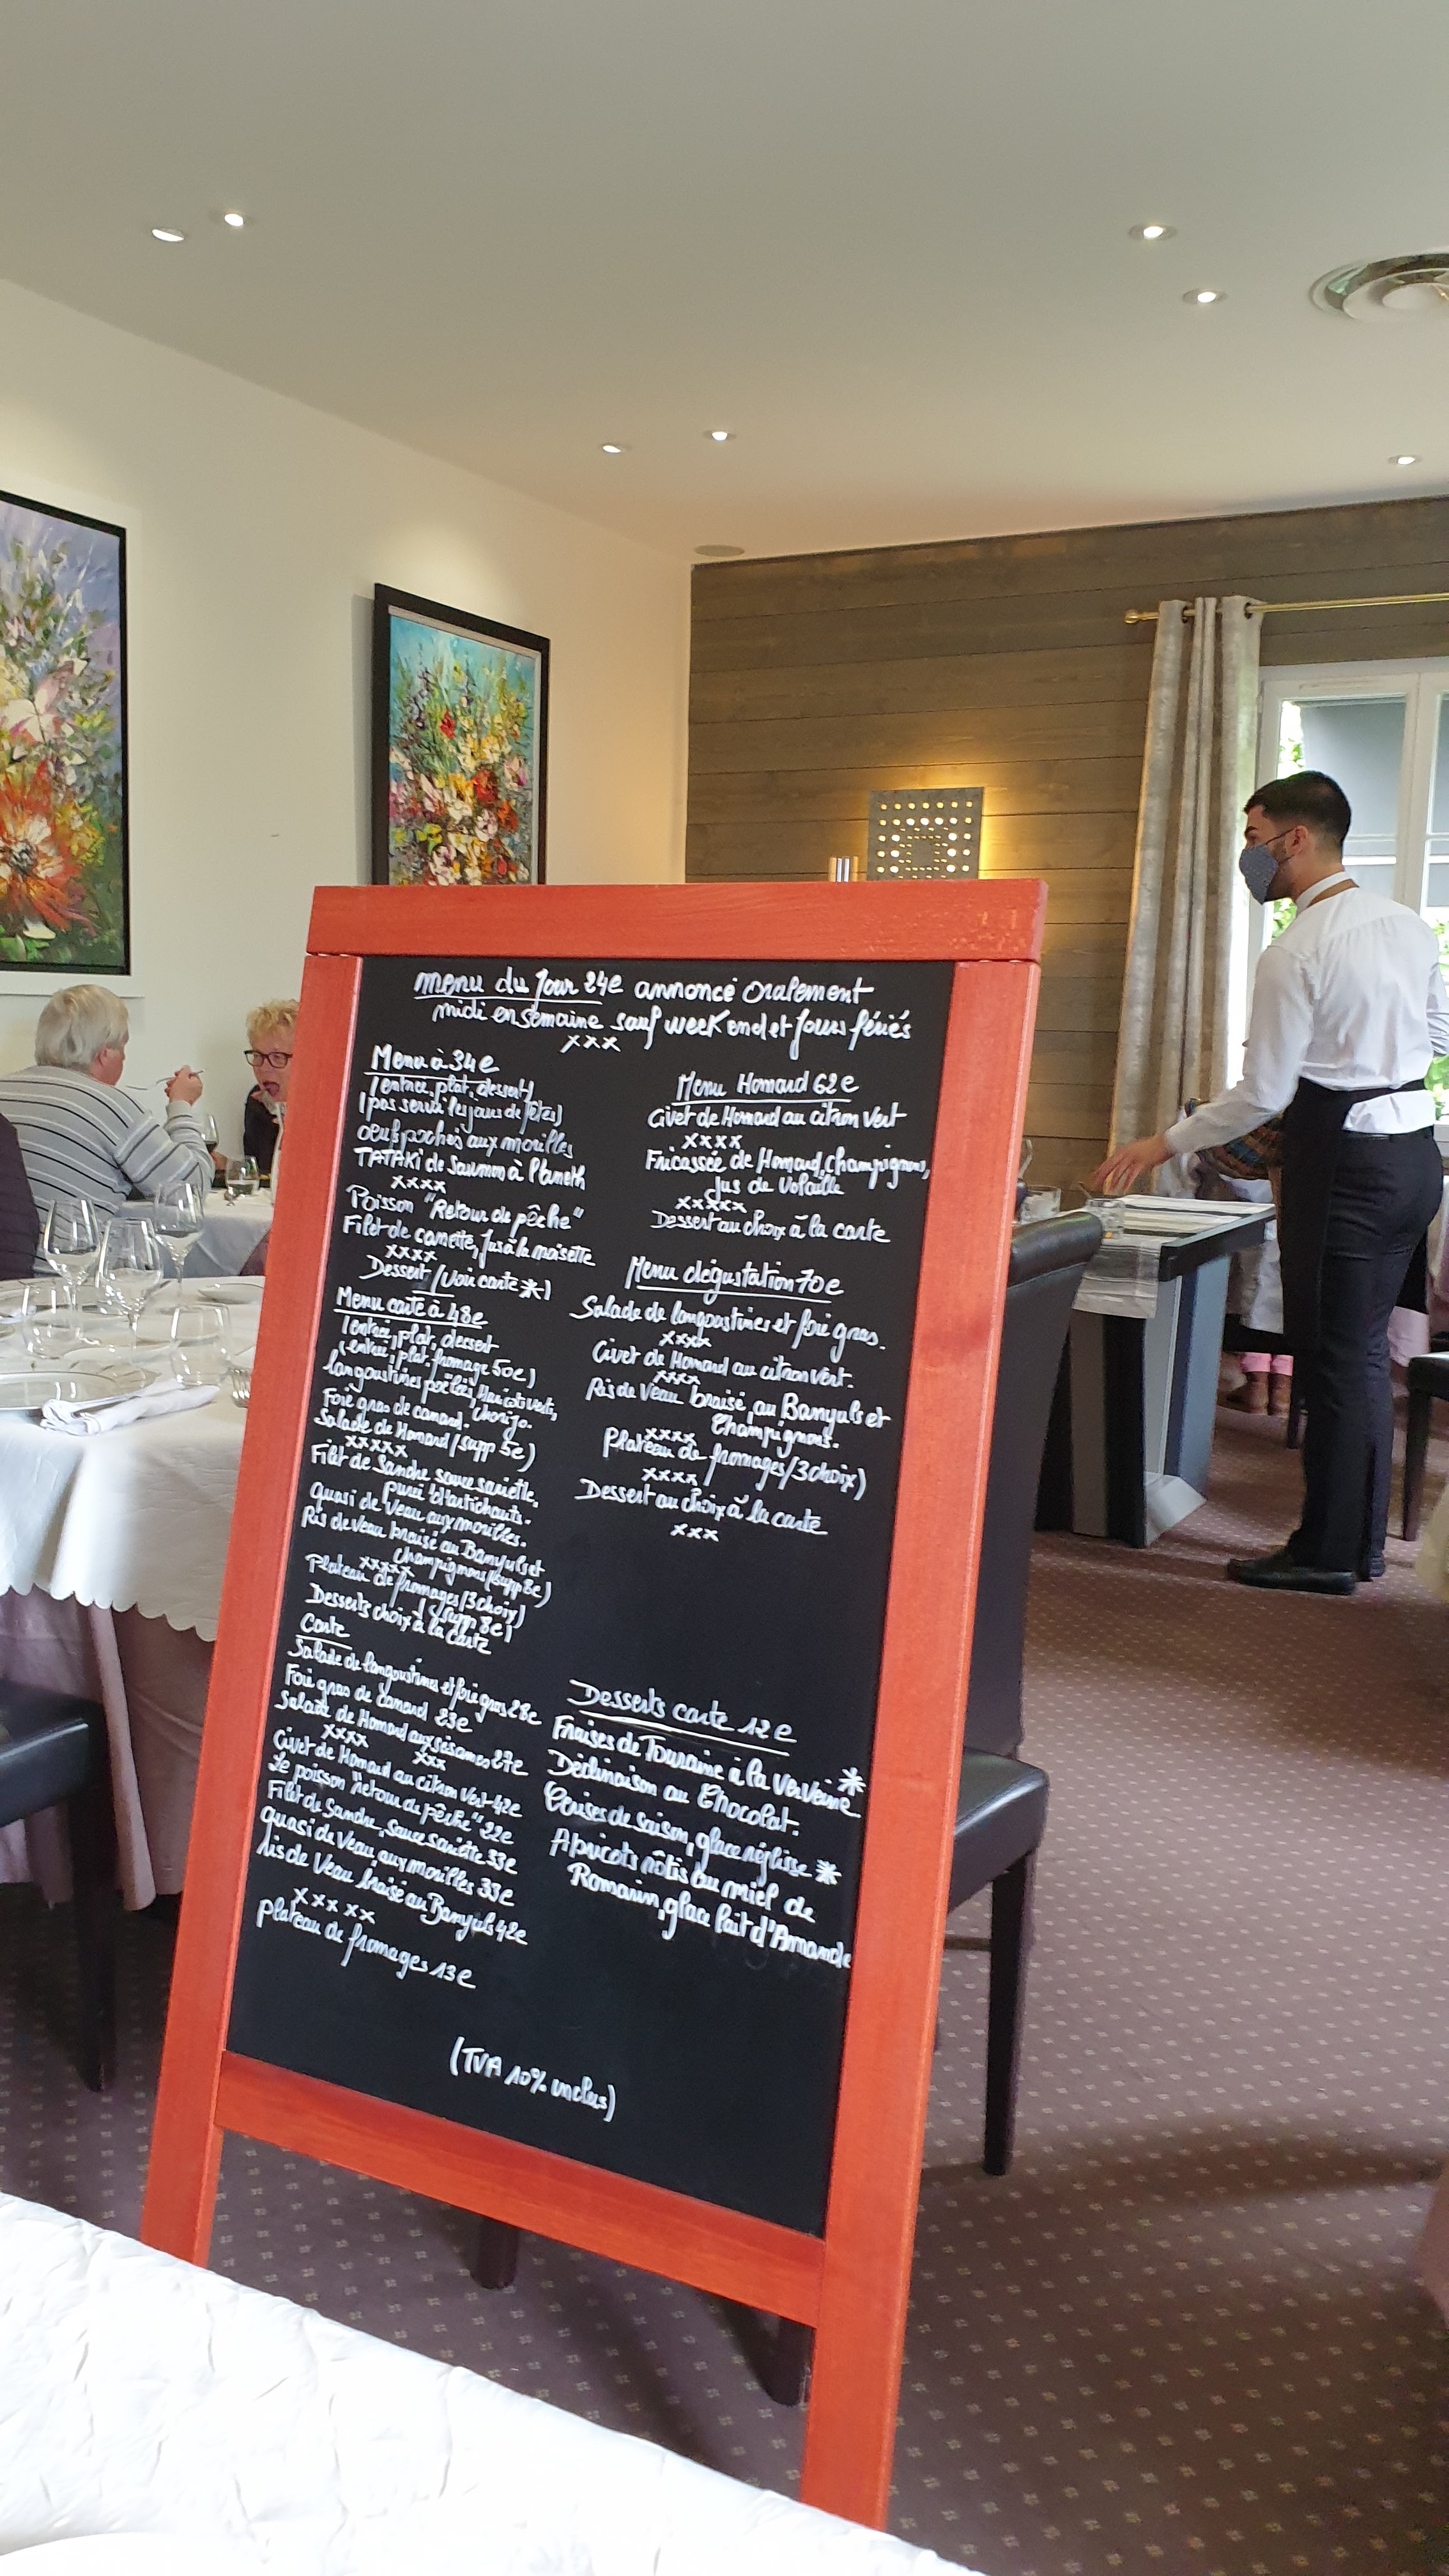 menu du Jour 24e annoncé oralement
midi en semaine sauf week end et Jours fériés
xxx
Menu à 34e
1 entrée, plat, dessert)
(pas servi les jours de fêtes)
oeufs pochés aux morilles
TATAKI de Saumon à l'aneth
xxxx
Poisson "Retour de pêche"
Filet de canette, Jus à la noisette
xxxx
Dessert (voir carte *)
Menu carte à 48e
1 entrée, plat, dessert
(entrée, plat, fromage 50e)
langoustines poêlées, Haricots verts,
chorizo.
Foie gras de canard.
Salade de Homard (supp 5e)
xxxxx
Filet de Sandre sauce sariette,
purée d'artichauts.
quasi de Veau aux morilles.
Ris de veau braisé au Banyuls et
champignons (supp 8e)
xxxxx
Plateau de fromages (3 choix)
(supp 8e)
Desserts choix à la Carte
Carte
Salade de langoustines et foie gras 28e
Foie gras de canard 23e
Salade de Homard aux sésames 27e
xxxx xxx
Civet de Homard au citron Vert 42e
Le poisson "retour de pêche" 22e
Filet de Sandre, sauce sariette 33e
quasi de Veau aux morilles 33e
Ris de Veau braisé au Banyuls 42e
xxxxx
plateau de fromages 13e
Menu Homard 62e
Civet de Homard au citron Vert
xxxx
Fricassée de Homard, champignons,
Jus de Volaille
xxxxx
Dessert au choix à la carte
Menu dégustation 70e
Salade de langoustines et foie gras.
xxxx
Civet de Homard au citron vert.
xxxx
Ris de Veau braisé, au Banyuls et
Champignons.
xxxx
Plateau de fromages (3 choix)
xxxx
Dessert au choix à la carte
xxx
Desserts carte 12e
Fraises de Touraine à la Verveine *
Déclinaison au Chocolat.
Cerises de saison, glace réglisse *
Abricots rôtis au miel de
Romarin, glace lait d'Amande
(TVA 10% inclus)